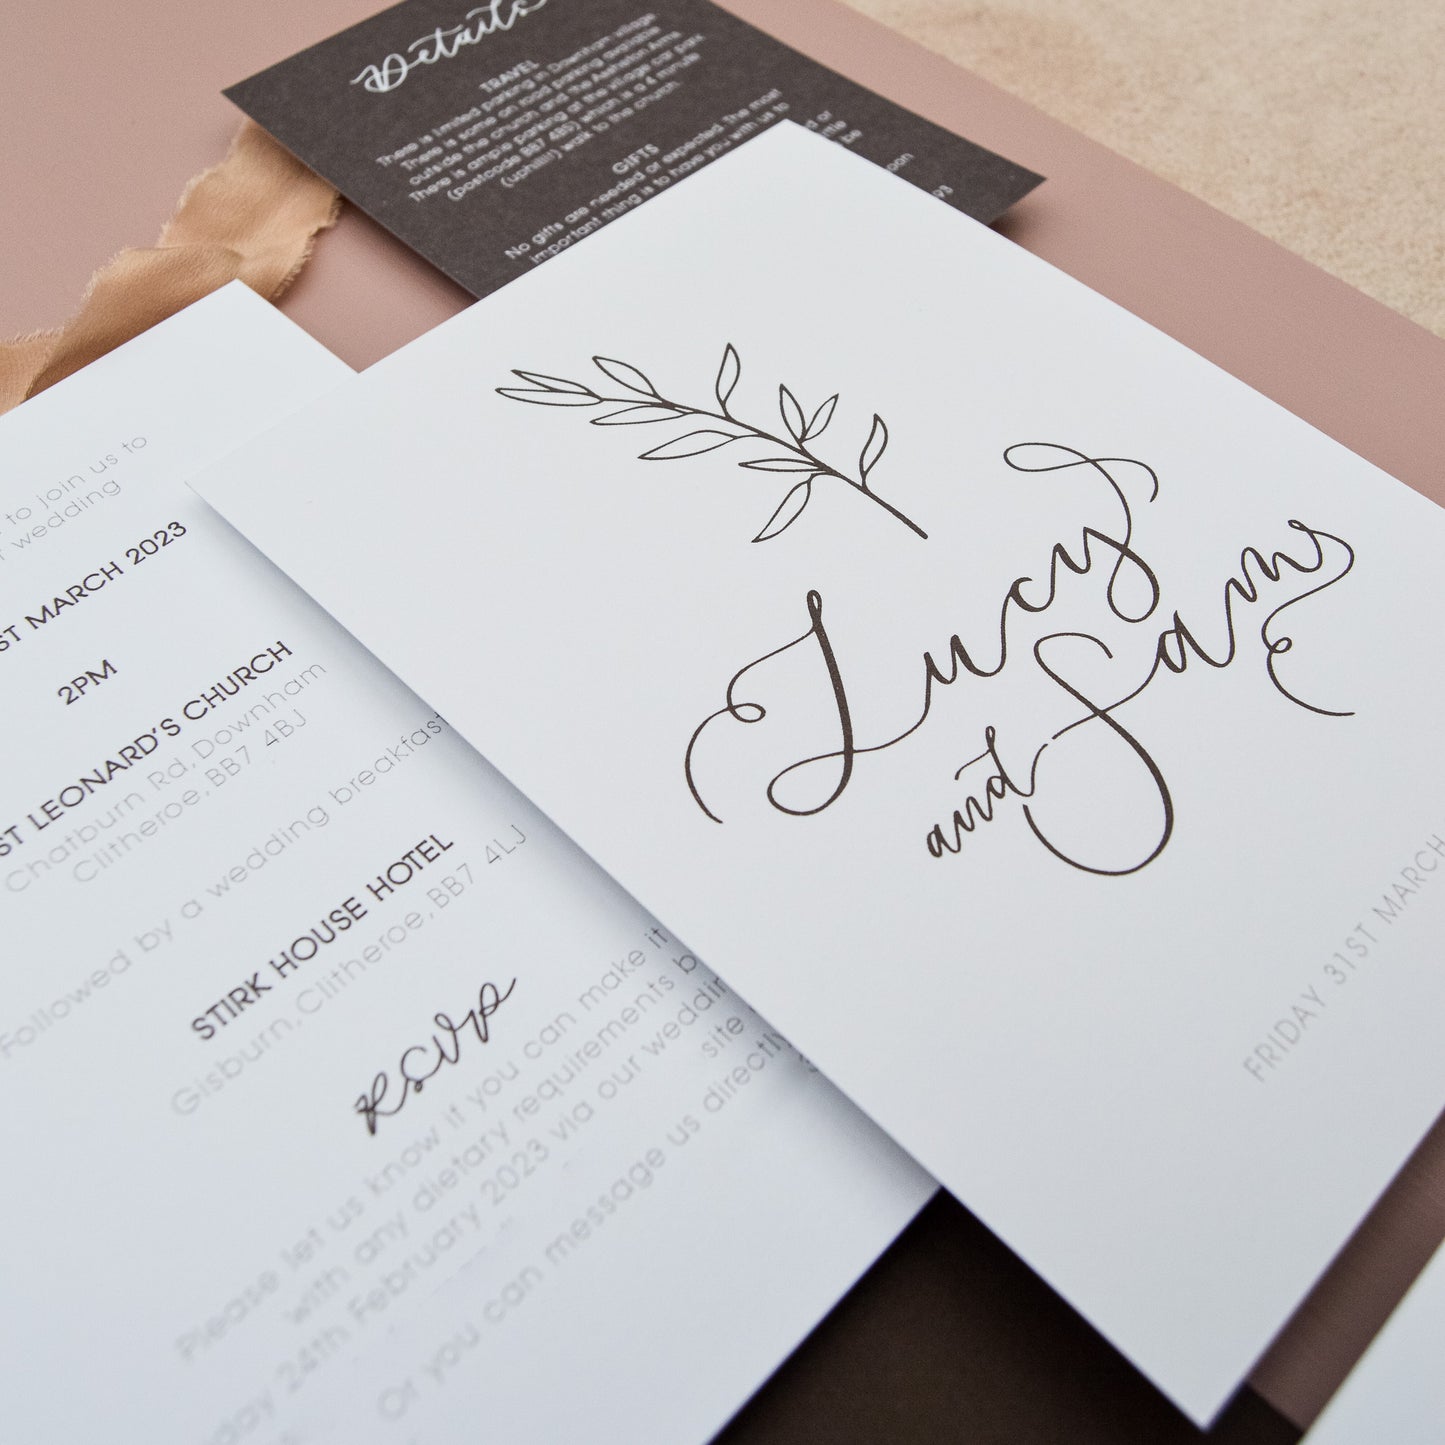 Details
TRAVEL
There is limited parking in Downham village
There is some on road parking available
outside the church and the Assheton Arms
There is ample parking at the village car park
(postcode BB7 4BS) which is a 4 minute
(uphill!!) walk to the church
GIFTS
No gifts are needed or expected. The most
important thing is to have you with us to
or
be
93
Lucy
and Sam
FRIDAY 31ST MARCH
to join us to
wedding
ST MARCH 2023
2PM
ST LEONARD'S CHURCH
Chatburn Rd, Downham
Clitheroe, BB7 4BJ
Followed by a wedding breakfast
STIRK HOUSE HOTEL
Gisburn, Clitheroe, BB7 4LJ
RSVP
Please let us know if you can make it
with any dietary requirements
24th February 2023 via our wedding
site
Or you can message us directly